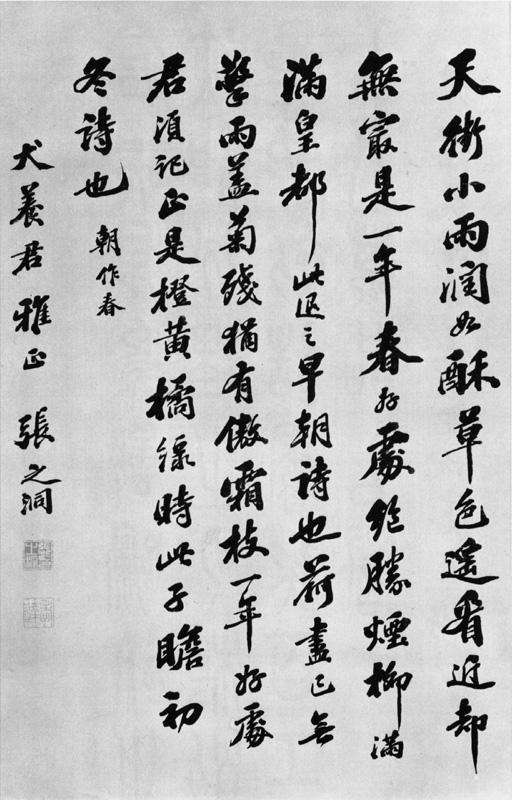 天街小雨潤如酥草色遙看近却
無最是一年春好處絕勝煙柳滿
滿皇都此退之早朝詩也荷盡已无
擎雨蓋菊殘猶有傲霜枝一年好處
君須記正是橙黃橘綠時此子瞻初
冬詩也 朝作春
犬養君雅正 張之洞